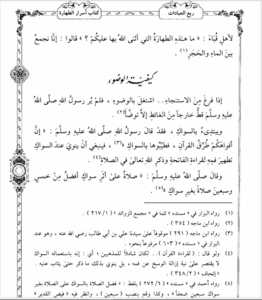 ربع العبادات كتاب أسرار الطهارة
لأهلِ قُبَاءَ : « ما هذهِ الطهارةُ التي أثنى اللهُ بها عليكُمْ ؟ » قالوا : إنَّا نجمعُ
بينَ الماءِ والحَجَرِ (١) .
كيفية الوضوء
إذا فرغَ مِنَ الاستنجاءِ . . اشتغلَ بالوضوءِ ، فلمْ يُرَ رسولُ اللهِ صلَّى اللهُ
عليهِ وسلَّمَ قطُّ خارجاً مِنَ الغائطِ إلَّا توضَّأَ (٢) .
ويبتدىءُ بالسواكِ ، فقدْ قالَ رسولُ اللهِ صلَّى اللهُ عليهِ وسلَّمَ : « إنَّ
أفواهَكُمْ طُرُقُ القرآنِ ، فطيِّبُوها بالسواكِ » (٣) ، فينبغي أنْ ينويَ عندَ السواكِ
تطهيرَ فمِهِ لقراءةِ الفاتحةِ وذكرِ اللهِ تعالى في الصلاةِ (٤) .
وقالَ صلَّى اللهُ عليهِ وسلَّمَ : « صلاةٌ علىٰ أثرِ سواكٍ أفضلُ مِنْ خمسٍ
وسبعينَ صلاةً بغيرِ سواكٍ » (٥) .
(١) رواه البزار في « مسنده » كما في « مجمع الزوائد » ( ٢١٧/١ ) .
(٢) رواه ابن ماجه ( ٣٥٤ ) .
(٣) رواه ابن ماجه ( ٢٩١ ) موقوفاً على سيدنا علي بن أبي طالب رضي الله عنه ، وهو عند
البزار في « مسنده » ( ٦٠٣ ) مرفوعاً بنحوه .